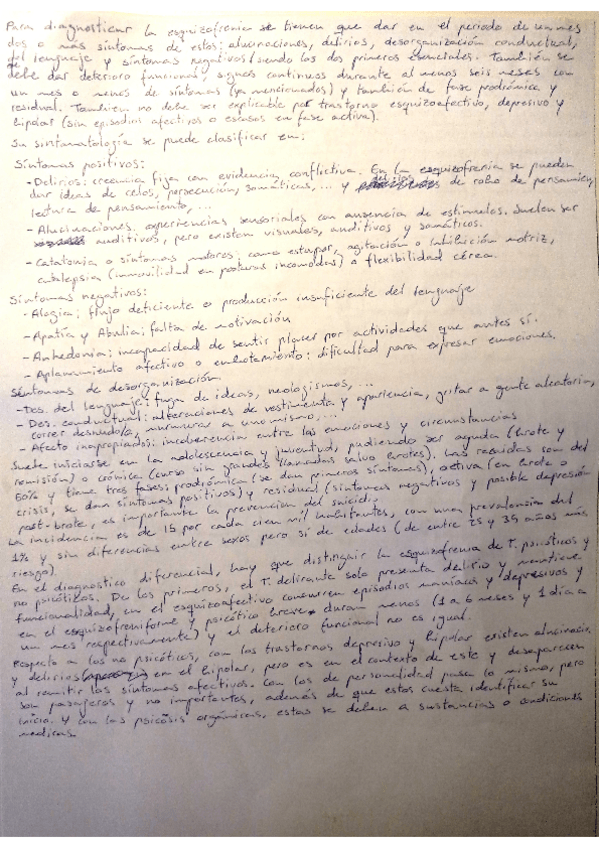 Para diagnosticar la esquizofrenia se tienen que dar en el periodo de un mes
dos o más síntomas de estos: alucinaciones, delirios, desorganización conductual,
del lenguaje y síntomas negativos (siendo los dos primeros esenciales. También se
debe dar deterioro funcional, signos continuos durante al menos seis meses con
un mes o menos de síntomas (ya mencionados) y también de fase prodrómica y
residual. Tambien no debe ser explicable por trastorno esquizoafectivo, depresivo y
bipolar (sin episodios afectivos o escasos en fase activa).
Su sintomatología se puede clasificar en:
Síntomas positivos:
- Delirios: creencia fija con evidencia conflictiva. En la esquizofrenia se pueden
dar ideas de celos, persecución, somáticas, ... y delirios de robo de pensamiento,
lectura de pensamiento, ...
- Alucinaciones: experiencias sensoriales con ausencia de estimulos. Suelen ser
auditivos, pero existen visuales, auditivos y somáticos.
- Catatonia o síntomas motores: como estupor, agitación o inhibición motriz,
catalepsia (inmovilidad en posturas incomodas) o flexibilidad cérea.
Síntomas negativos:
- Alogia: flujo deficiente o producción insuficiente del lenguaje
- Apatía y Abulia: falta de motivación
- Anhedonia: incapacidad de sentir placer por actividades que antes sí.
- Aplanamiento afectivo o embotamiento: dificultad para expresar emociones.
Síntomas de desorganización.
- Des. del lenguaje: fuga de ideas, neologismos, ...
- Des. conductual: alteraciones de vestimenta y apariencia, gritar a gente aleatoria,
correr desnudo/a, murmurar a uno mismo, ...
- Afecto inapropiados: incoherencia entre las emociones y circunstancias
Suele iniciarse en la adolescencia y juventud, pudiendo ser aguda (brote y
remisión) o crónica (curso sin grandes salvo brotes). Las recaidas son del
60% y tiene tres fases: prodrómica (se dan primeros síntomas), activa (en brote o
crisis, se dan síntomas positivos) y residual (síntomas negativos y posible depresión
post-brote, es importante la prevención del suicidio.
La incidencia es de 15 por cada cien mil habitantes, con una prevalencia del
1% y sin diferencias entre sexos pero sí de edades (de entre 25 y 35 años más
riesgo).
En el diagnostico diferencial, hay que distinguir la esquizofrenia de T. psicóticos y
no psicóticos. De los primeros, el T. delirante solo presenta delirio y mantiene
funcionalidad, en el esquizoafectivo concurren episodios maníacos y depresivos y
en el esquizofreniforme y psicótico breve duran menos (1 a 6 meses y 1 día a
un mes respectivamente) y el deterioro funcional no es igual.
Respecto a los no psicóticos, con los trastornos depresivo y bipolar existen alucinacio.
y delirios en el bipolar, pero es en el contexto de este y desaparecen
al remitir los síntomas afectivos. Con los de personalidad pasa lo mismo, pero
son pasajeros y no importantes, además de que estos cuesta identificar su
inicio. Y con las psicósis orgánicas, estas se deben a sustancias o condiciones
medicas.